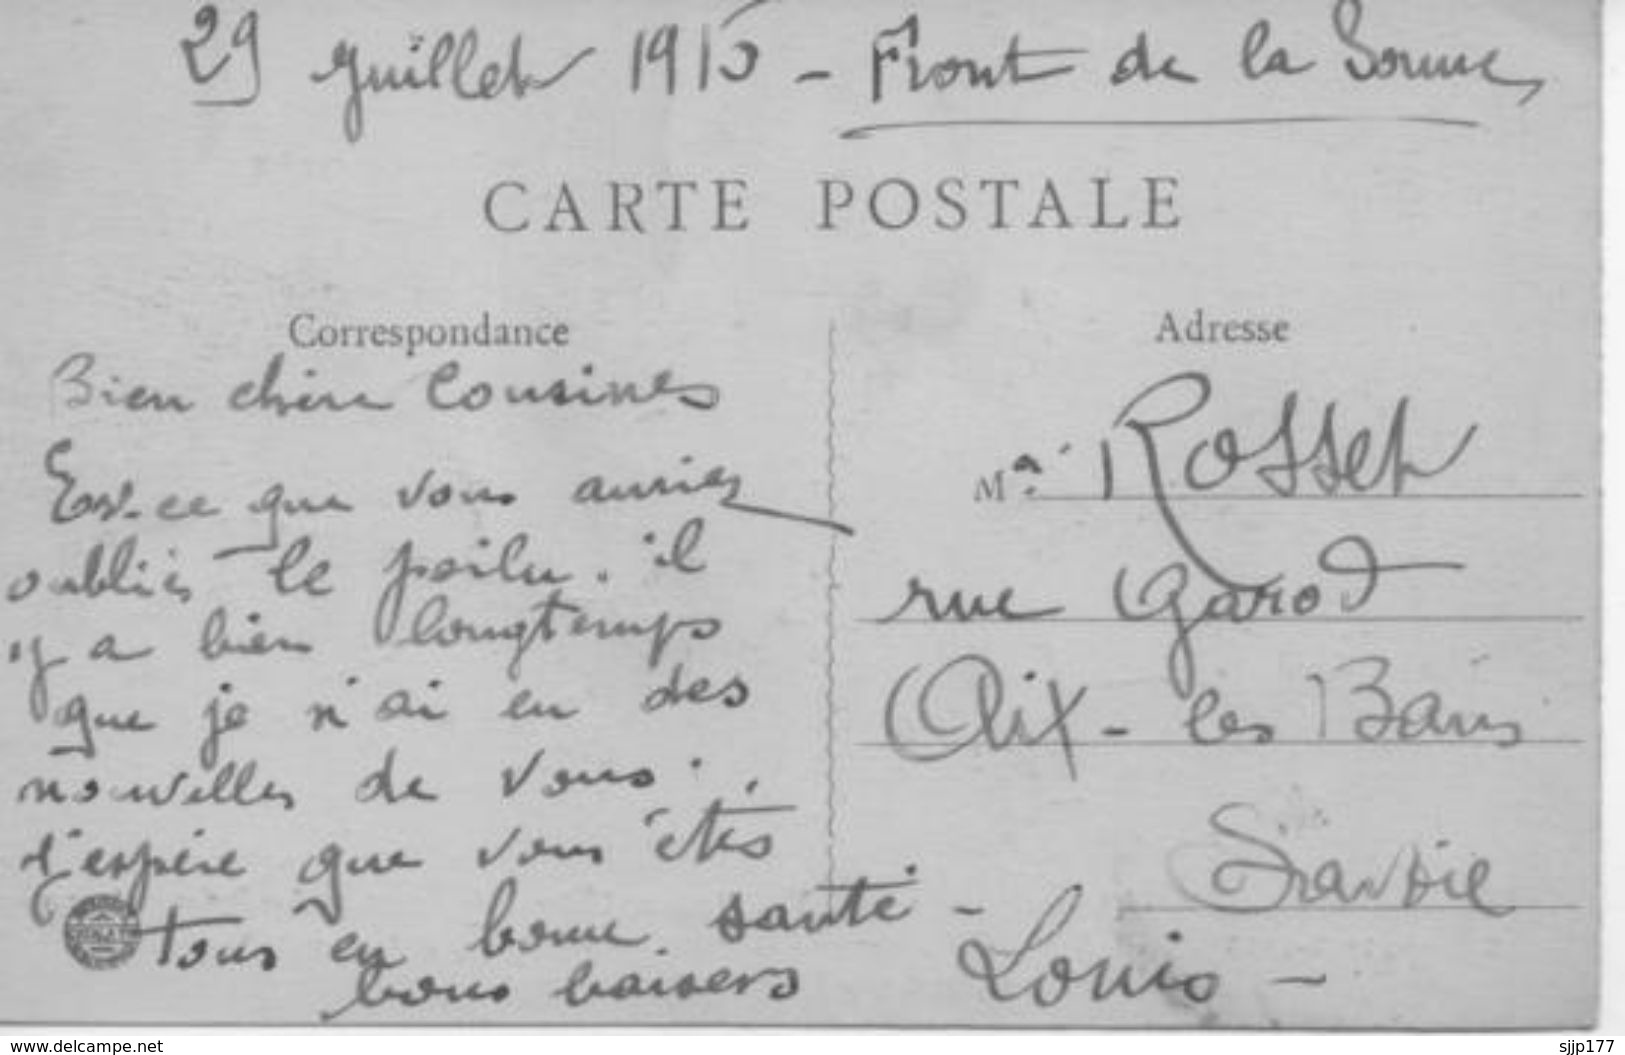 29 Juillet 1915 - Front de la Somme,
CARTE POSTALE
Correspondance
Bien chère Cousines
Est-ce que vous auriez
oubliés le poilu. il
y a bien longtemps
que je n'ai eu des
nouvelles de vous.
j'espère que vous êtes
tous en bonne santé -
bons baisers
Louis -
Adresse
Ma. Rosset
rue Garod
Aix-les Bains
Savoie
www.delcampe.net
sjjp177